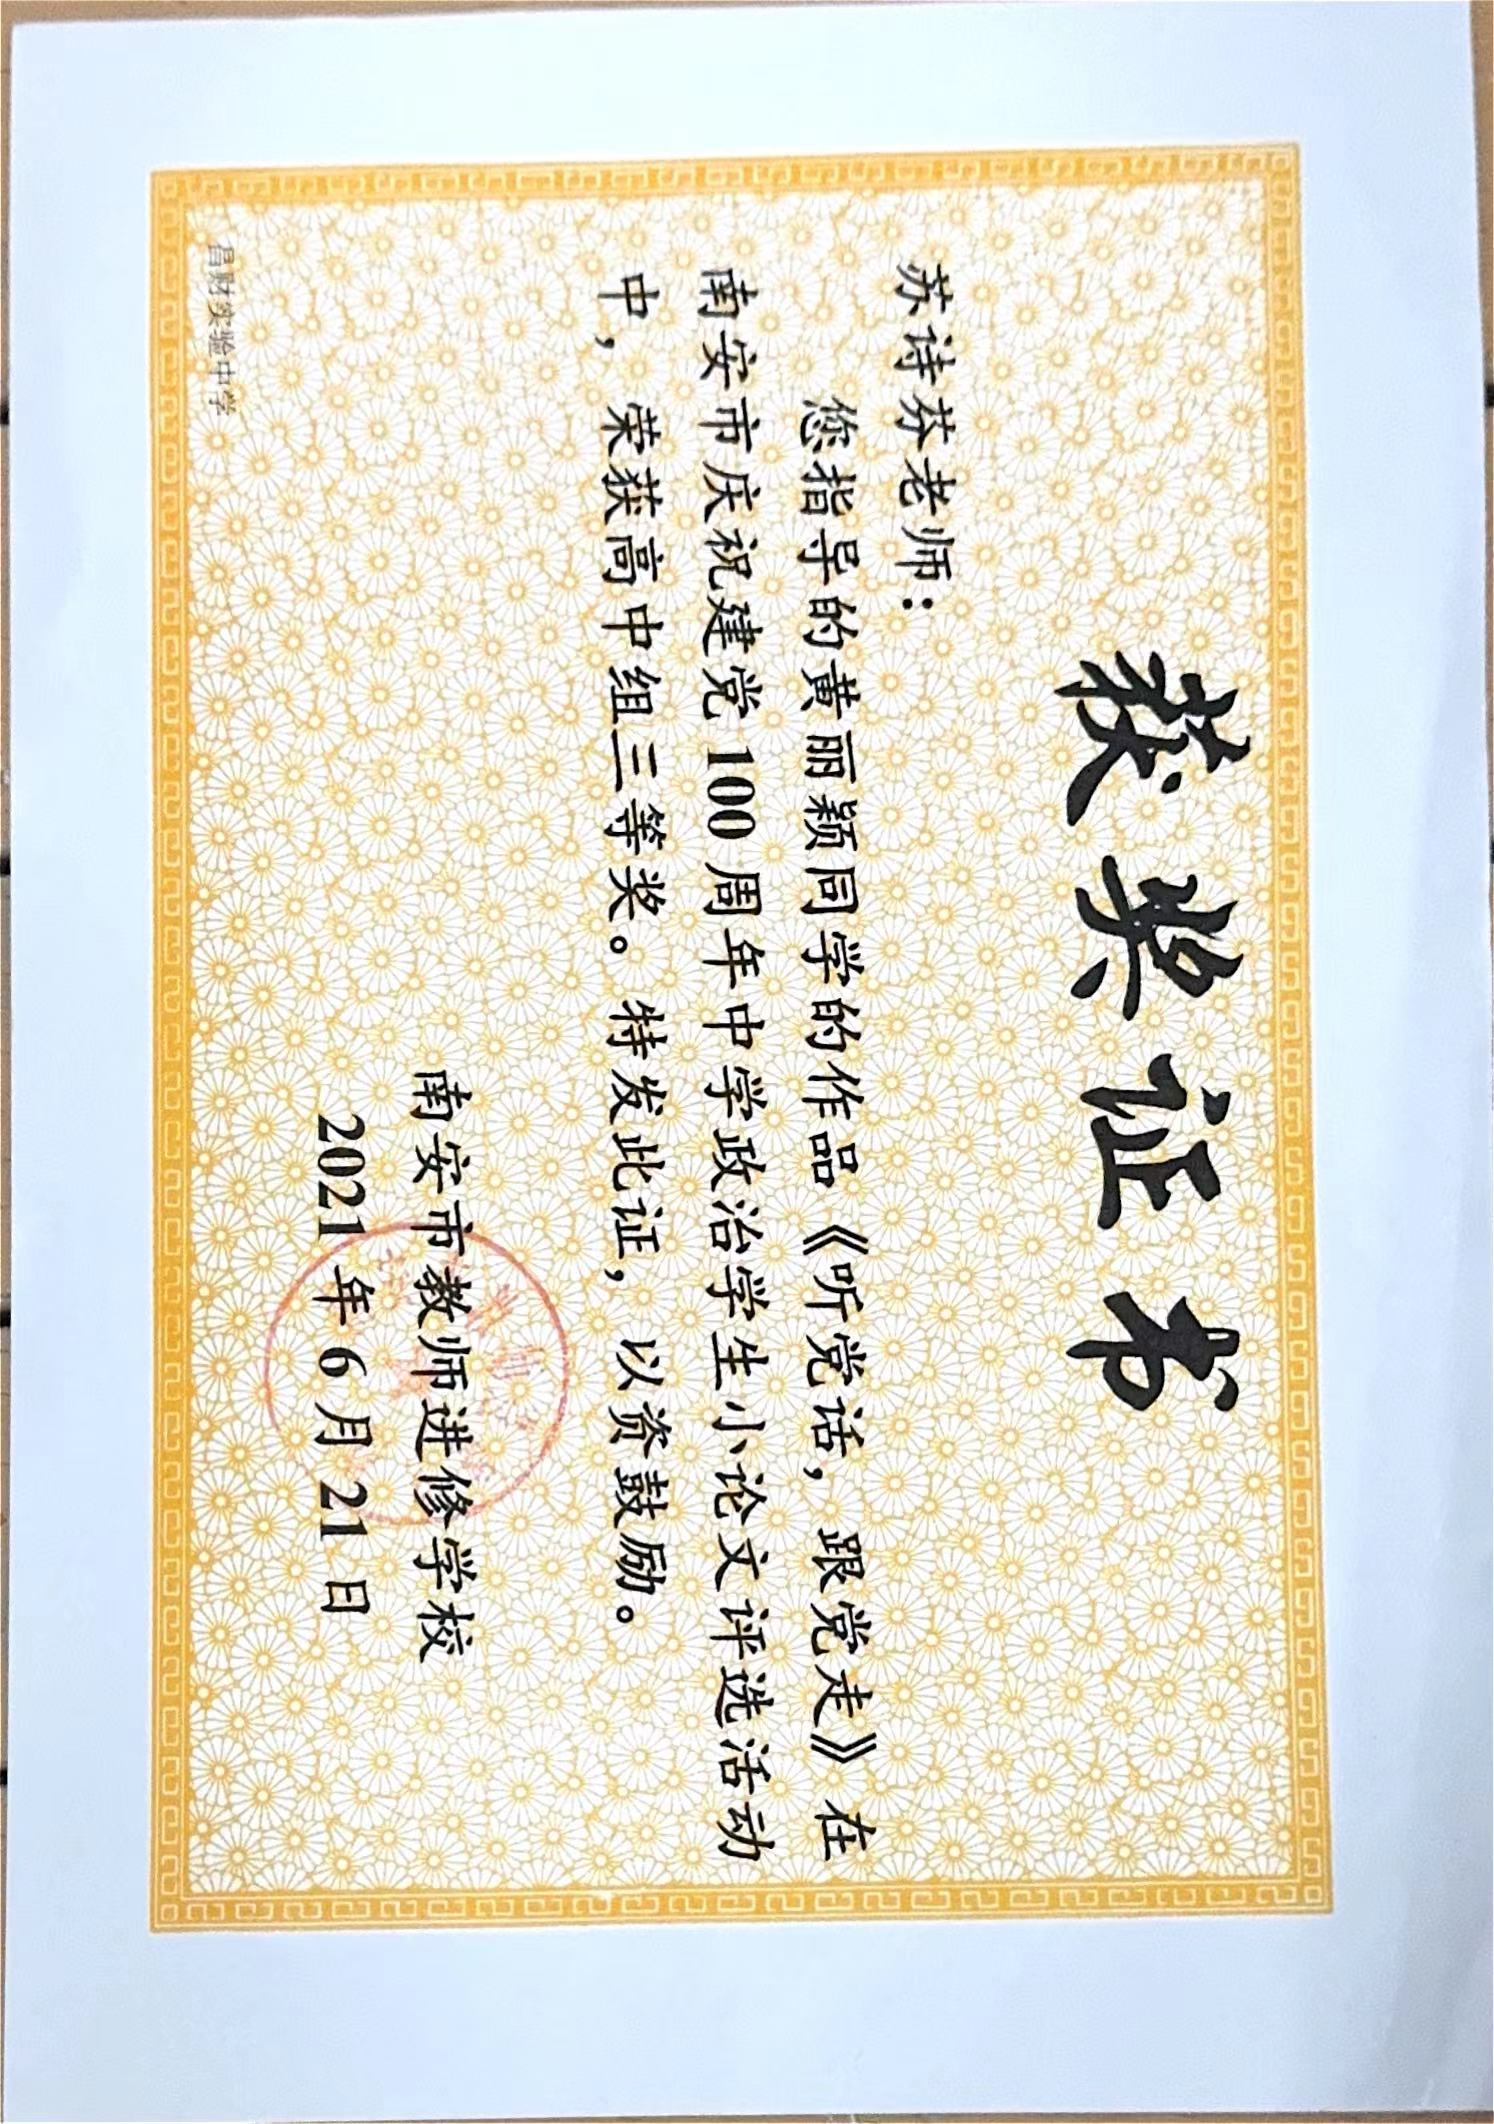 获奖证书
苏诗芬老师：
您指导的黄丽颖同学的作品《听党话，跟党走》在
南安市庆祝建党100周年中学政治学生小论文评选活动
中，荣获高中组三等奖。特发此证，以资鼓励。
南安市教师进修学校
2021年6月21日
昌财实验中学